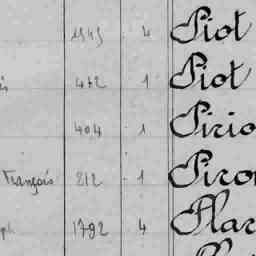 1545 4 Piot
is 472 1 Piot
404 1 Pirio
François 212 1 Piro
ph 1792 4 Plar